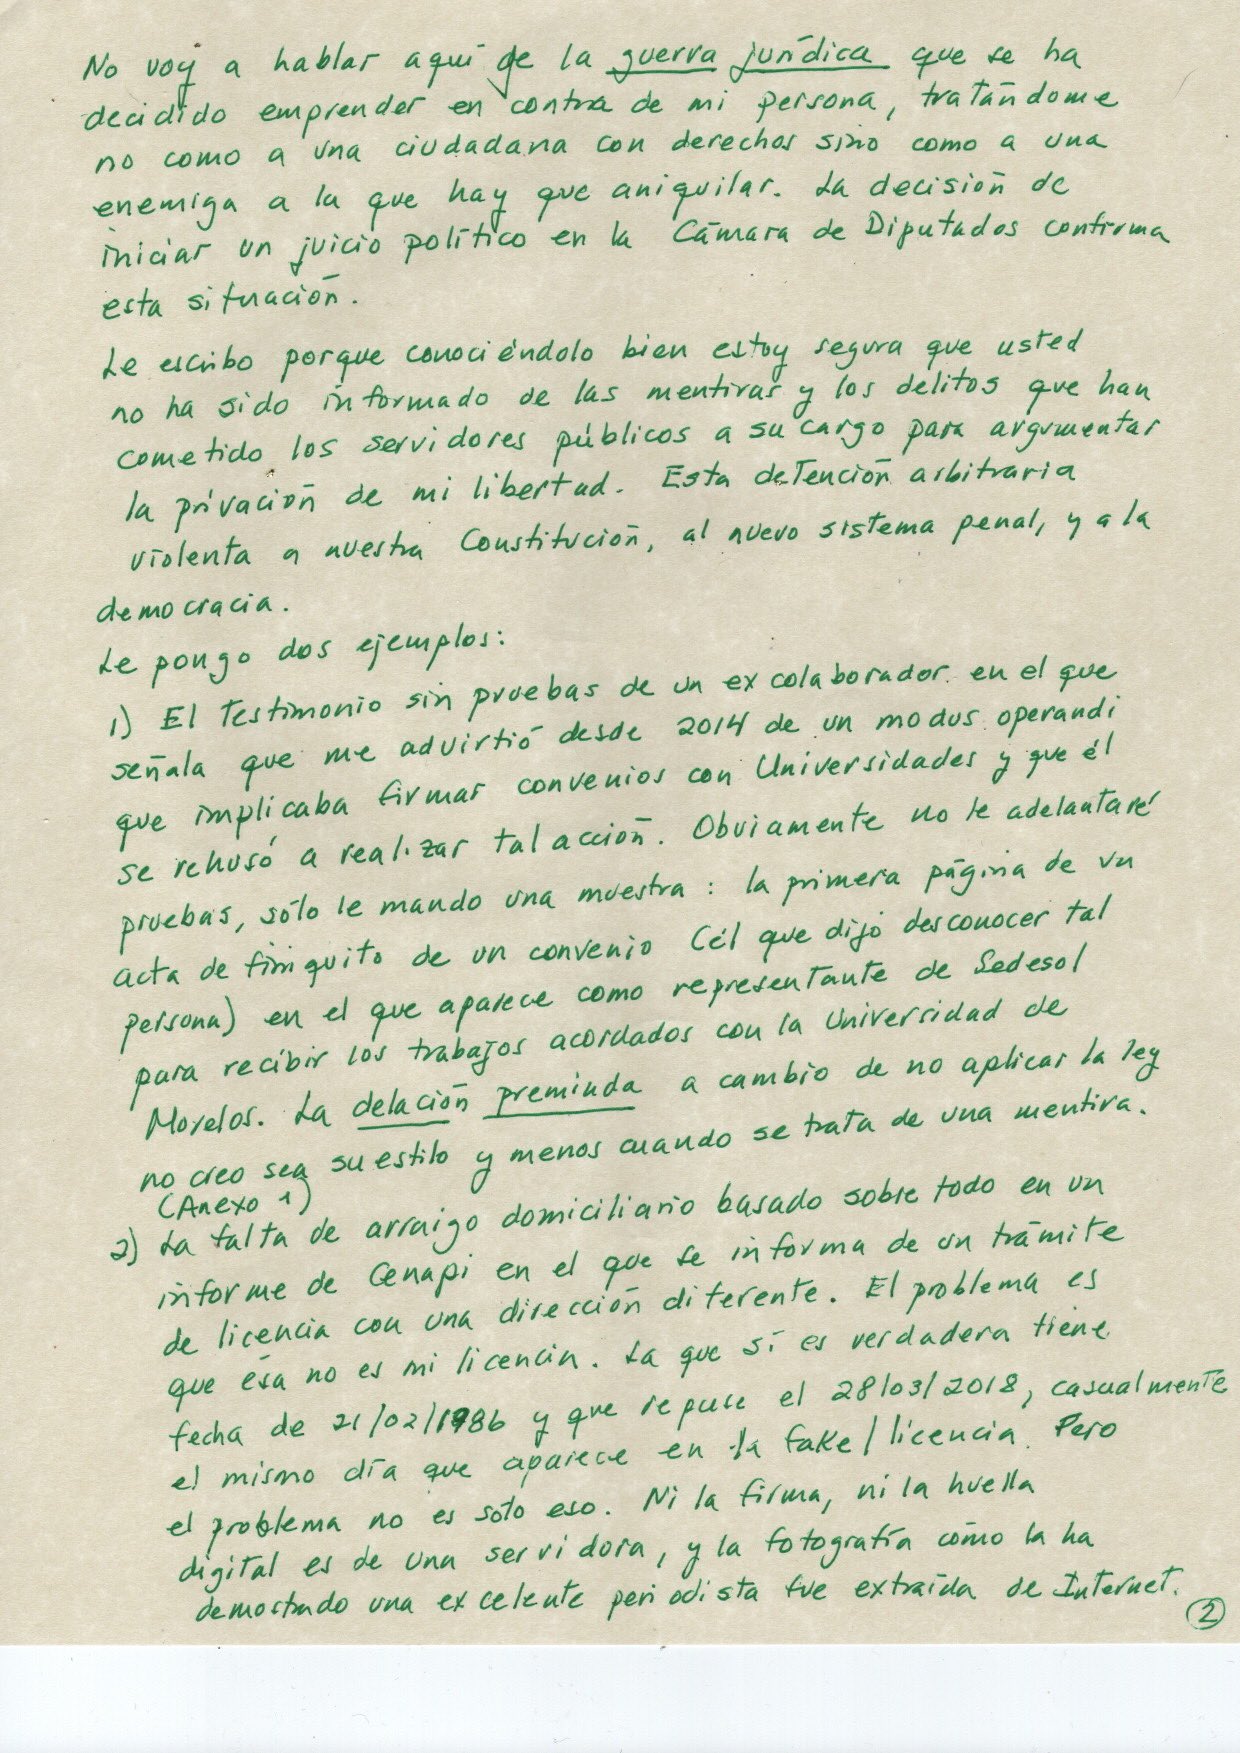 No voy a hablar aquí de la guerra jurídica que se ha
decidido emprender en contra de mi persona, tratándome
no como a una ciudadana con derechos sino como a una
enemiga a la que hay que aniquilar. La decisión de
iniciar un juicio político en la Cámara de Diputados confirma
esta situación.
Le escribo porque conociéndolo bien estoy segura que usted
no ha sido informado de las mentiras y los delitos que han
cometido los servidores públicos a su cargo para argumentar
la privación de mi libertad. Esta detención arbitraria
violenta a nuestra Constitución, al nuevo sistema penal, y a la
democracia.
Le pongo dos ejemplos:
1) El Testimonio sin pruebas de un ex colaborador en el que
señala que me advirtió desde 2014 de un modus operandi
que implicaba firmar convenios con Universidades y que él
se rehusó a realizar tal acción. Obviamente no le adelantaré
pruebas, sólo le mando una muestra: la primera página de un
acta de finiquito de un convenio (él que dijo desconocer tal
persona) en el que aparece como representante de Sedesol
para recibir los trabajos acordados con la Universidad de
Morelos. La delación premiada a cambio de no aplicar la ley
no creo sea su estilo y menos cuando se trata de una mentira.
(Anexo 1)
2) La falta de arraigo domiciliario basado sobre todo en un
informe de Cenapi en el que se informa de un trámite
de licencia con una dirección diferente. El problema es
que ésa no es mi licencia. La que sí es verdadera tiene
fecha de 21/02/1986 y que repuse el 28/03/2018, casualmente
el mismo día que aparece en la fake/licencia. Pero
el problema no es sólo eso. Ni la firma, ni la huella
digital es de una servidora, y la fotografía cómo la ha
demostrado una excelente periodista fue extraída de Internet.
2